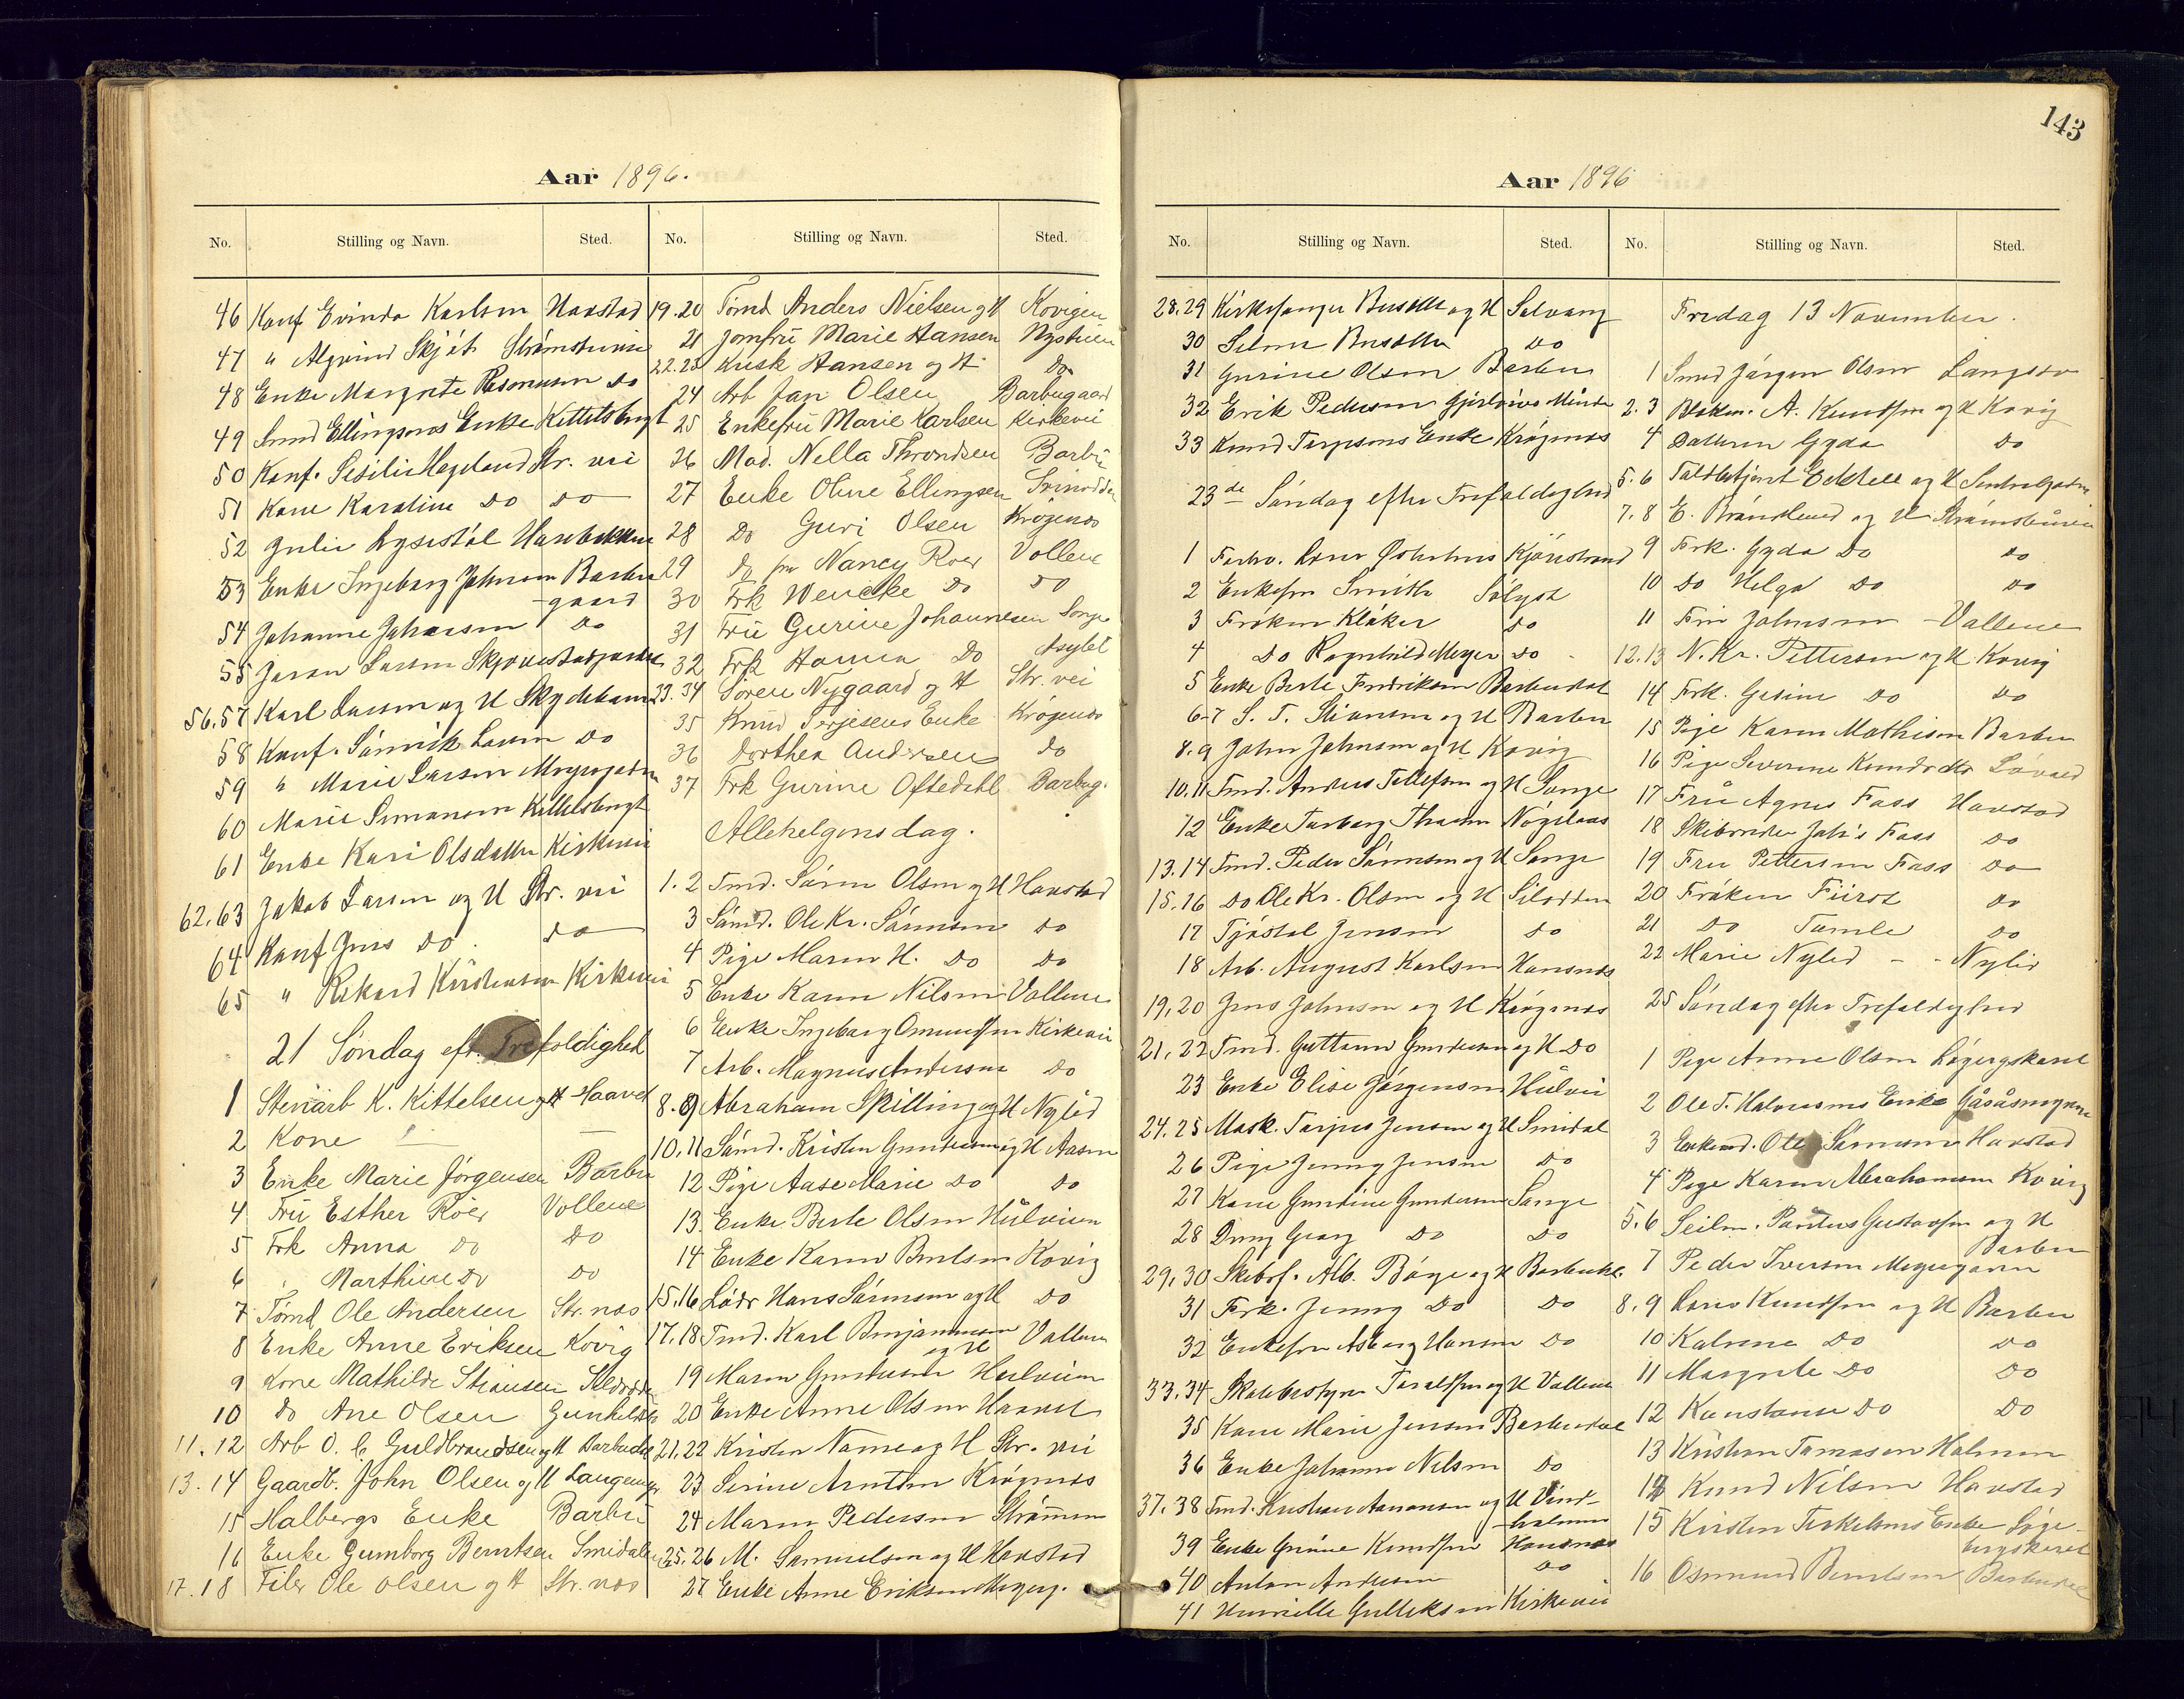 143
Aar 1896.
No. Stilling og Navn. Sted.
46 Konf Evinda Karlsen Havstad
47 " Algvind Skjöt Strömstuvei
48 Enke Margrete Rasmusen do
49 Smed Ellingsens Enke Kittelsbugt
50 Konf. Sesilie Hageland Str. vei
51 Kone Karoline do do
52 Julie Lysestöl Havebakken
53 Enke Ingeborg Johnsen Barbu
gaard
54 Johanne Johansen do
55 Joran Larsen
56.57 Karl Larsen og H Skydeban
58 Konf. Sörvik Larsen do
59 " Marie Larsen Myregaden
60 Marie Simonsen Kittelsbugt
61 Enke Kari Olsdatter Kirkevei
62.63 Jakob Larsen og H Str. vei
64 Konf Jens do. do
65 " Rikard Kristensen Kirkevei
21 Søndag eft. Trefoldighed
1 Stenarb K. Kittelsen og H Haavet
2 Kone
3 Enke Marie Jørgensen Barbu
4 Frü Esther Röer Vollene
5 Frk Anna do do
6 " Marthine do do
7 Tømd Ole Andersen Str. næs
8 Enke Anne Eriksen Kovig
9 Kone Mathilde Stiansen
10 do Ane Olsen
11.12 Arb O. C. Guldbrandsen og H Barbudal
13.14 Gaardb. John Olsen og H
15 Halbergs Enke Barbü
16 Enke Gumborg Berntsen Smidalen
17.18 Filer Ole Olsen og H Str. næs
No. Stilling og Navn. Sted.
19.20 Tømd Anders Nielsen og H Kovigen
21 Jomfrü Marie Hansen Nystuen
22.23 Kusk Hansen og H do
24 Arb Jan Olsen Barbugaard
25 Enkefrü Marie Karlsen Kirkevei
26 Mad. Nella Throndsen Barbü
27 Enke Oline Ellingsen
28 do Guri Olsen Krøgenes
29 do fru Nancy Roer Vollene
30 Frk Wencke do do
31 Frü Gurine Johannesen Songe
32 Frk Hanna do Asylet
33.34 Sören Nygaard og H Str. vei
35 Knud Terjesens Enke Krøgenes
36 Dorthea Andersen do
37 Frk Gurine Oftedahl Barbug.
Allehelgensdag.
1.2 Tmd. Sören Olsen og H Havstad
3 Sömd. Ole Kr. Sörensen do
4 Pige Maren H. do do
5 Enke Karen Nilsen Vollene
6 Enke Ingeborg Omundsen Kirkevei
7 Arb. Magnus Andersen do
8.9 Abraham Skilling og H Nylid
10.11 Sömd. Kristen Gundersen og H Aasen
12 Pige Aase Marie do do
13 Enke Berte Olsen Hülveien
14 Enke Karen Berntsen Kovig
15.16 Lods Hans Sörensen og H do
17.18 Tmd. Karl Benjaminsen Vollene
og H
19 Maren Gundersen Hulveien
20 Enke Anne Olsen Haavet
21.22 Kristen Name og H Str. vei
23 Serine Arntsen Krögenes
24 Maren Pedersen Strömmen
25.26 M. Samuelsen og H Havstad
27 Enke Anne Eriksen Myreg.
Aar 1896
No. Stilling og Navn. Sted.
28.29 Kirkesanger Busætter og H Solvang
30 Selma Busætter do
31 Gurine Olsen Barbu
32 Erik Pedersen Minde
33 Knud Terjesens Enke Krögenes
23de Söndag efter Trefoldighed
1 Forhv. Lærer Osholms Kjönstrand
2 Enkefru Smith Sölyst
3 Fröken Klöker do
4 do Ragnhild Meyer do
5 Enke Berte Fredriksen Barbudal
6-7 S. T. Stiansen og H Barbu
8.9 John Johnsen og H Kovig
10.11 Tmd. Anders Tellefsen og H Songe
12 Enke Torborg Thorsen
13.14 Tmd. Peder Sörensen og H Songe
15.16 do Ole Kr. Olsen og H Silodden
17 Tjöstol Jensen do
18 Arb. August Karlsen Hansnes
19.20 Jens Johnsen og H Krögenes
21.22 Tmd. Guttorm Gundersen og H do
23 Enke Elise Jörgensen Hülvei
24.25 Mask. Terjus Jensen og H Smidal
26 Pige Jenny Jensen do
27 Kone Gundine Gundersen Songe
28 Dreng Georg do do
29.30 Skibsf. Alb. Böge og H Barbudal.
31 Frk. Jenny do do
32 Enkefru Asborg Hansen do
33.34 Skolebestyrer Taraldsen og H Vollene
35 Kone Marie Jensen Barbudal
36 Enke Johanne Nilsen do
37.38 Tmd. Kristian Aanonsen og H Vind-
holmen
39 Enke Grine Knudsen Hansnes
40 Anton Andersen do
41 Henriette Gulleksen Kirkevei
No. Stilling og Navn. Sted.
Fredag 13 November.
1 Smed Jörgen Olsen Langsæv
2.3 Blokm. A. Knudsen og H Kovig
4 Datteren Gyda do
5.6 Toldbetjent Eckhell og H Sentralgaden
7.8 E. Brandlund og H Strömsbuvei
9 Frk. Gyda do do
10 do Helga do do
11 Fru Johnsen - Vollene
12.13 N. Kr. Pettersen og H Kovig
14 Frk. Gesine do do
15 Pige Karen Mathisen Barbu
16 Pige Severine Knudsdtr
17 Frü Agnes Fass Havstad
18 Skibsreder Joh's Fass do
19 Fru Pettersen Fass do
20 Fröken Fürst do
21 do Tamle do
22 Marie Nylid - - Nylid
25 Söndag efter Trefoldighed
1 Pige Anne Olsen
2 Ole T. Halvorsens Enke
3 Enkemd. Ole Sörensen Havstad
4 Pige Karen Abrahamsen Kovig
5.6 Seilm. Pontus Gustavsen og H
Barbu
7 Peder Iversen Myregaten
8.9 Lars Knudsen og H Barbu
10 Kalrine do do
11 Margrete do do
12 Konstanse do do
13 Kristian Tomasen Holmen
14 Knud Nilsen Havstad
15 Kristen Terkelsens Enke
16 Osmund Berntsen Barbudal